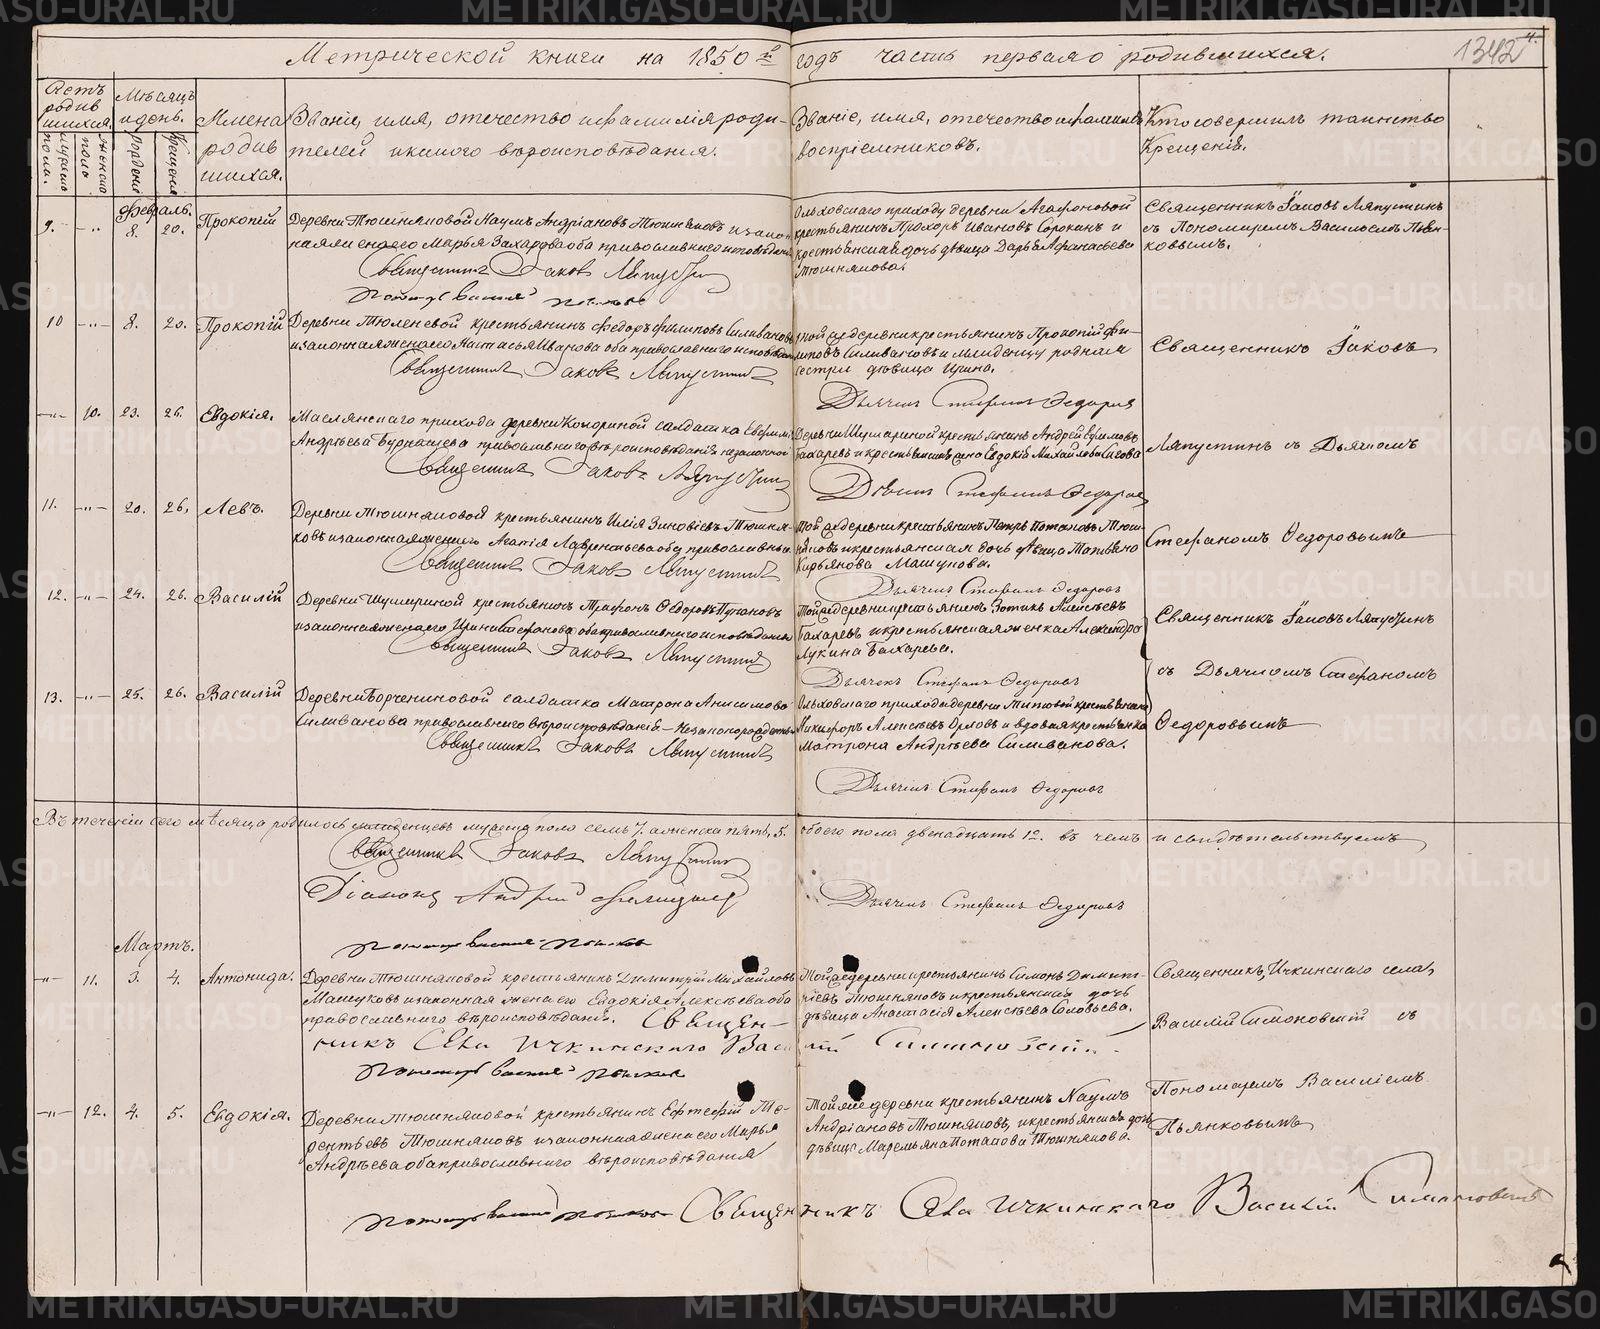 METRIKI.GASO-URAL.RU
Метрической книги на 1850й годъ часть перваяо родившихся.
4.
1342
Счетъ родившихся.
Мѣсяцъ и день.
Имена родившихся.
Званіе, имя, отечество и фамилія родителей и какого вѣроисповѣданія.
Званіе, имя, отечество и фамилія воспріемниковъ.
Кто совершилъ таинство Крещенія.
мужеска пола.
женска пола
Рожденія
Крещенія
Февраль.
9. -"- 8. 20. Прокопій
Деревни Тюшняковой Наумъ Андріановъ Тюшняковъ и законная жена его Марья Захарова оба православнаго исповѣданія
Священникъ Іаковъ Ляпустинъ
Ольховскаго приходу деревни Агафоновой
крестьянинъ Прохоръ Ивановъ Сорокинъ и
крестьянская дочь дѣвица Дарья Афанасьева
Тюшнякова.
Священникъ Іаковъ Ляпустинъ
съ Пономаремъ Василіемъ Пьянковымъ.
10 -"- 8. 20. Прокопій
Деревни Тюленевой крестьянинъ Федоръ Филиповъ Силивановъ
и законная жена его Настасья Иванова оба православнаго исповѣданія
Священникъ Іаковъ Ляпустинъ
Той же деревни крестьянинъ Прокопій Филиповъ Силивановъ и младенцу родная
сестра дѣвица Ирина.
Дьячекъ Стефанъ Федоровъ
Священникъ Іаковъ
-"- 10. 23. 26. Евдокія.
Маслянскаго прихода деревни солдатка
Андрѣева Бурнашева православнаго вѣроисповѣданія незаконной
Священникъ Іаковъ Ляпустинъ
Деревни Шушариной крестьянинъ Андрей Ефимовъ
Бахаревъ и крестьянская жена Евдокія Михайлова
Дьячекъ Стефанъ Федоровъ
Ляпустинъ съ Дьячкомъ
11. -"- 20. 26. Левъ.
Деревни Тюшняковой крестьянинъ Илія Зиновіевъ Тюшняковъ и законная жена его Агапія Лаврентьева оба православныя
Священникъ Іаковъ Ляпустинъ
Той же деревни крестьянинъ Петръ Потаповъ Тюшняковъ и крестьянская дочь дѣвица Татьяна
Кирьянова Машукова.
Дьячекъ Стефанъ Федоровъ
Стефаномъ Федоровымъ
12. -"- 24. 26. Василій
Деревни Шушариной крестьянинъ Трифонъ Федоровъ
и законная жена его Ирина Стефанова оба православнаго исповѣданія
Священникъ Іаковъ Ляпустинъ
Той же деревни крестьянинъ Зотикъ Алексѣевъ
Бахаревъ и крестьянская женка Александра
Лукина Бахарева.
Дьячекъ Стефанъ Федоровъ
Священникъ Іаковъ Ляпустинъ
съ Дьячкомъ Стефаномъ
13. -"- 25. 26. Василій
Деревни солдатка Матрона Анисимова
Силиванова православнаго вѣроисповѣданія
Священникъ Іаковъ Ляпустинъ
Ольховскаго прихода деревни
Никифоръ Алексѣевъ Орловъ и вдовая крестьянка
Матрона Андрѣева Силиванова.
Дьячекъ Стефанъ Федоровъ
Федоровымъ
Въ теченіи сего мѣсяца родилось младенцевъ мужеска пола семь 7. а женска пять, 5. обоего пола двенадцать 12. въ чемъ и свидѣтельствуемъ
Священникъ Іаковъ Ляпустинъ
Діаконъ Андрей
Дьячекъ Стефанъ Федоровъ
Пономарь Василій Пьянковъ
Мартъ.
-"- 11. 3. 4. Антонида.
Деревни Тюшняковой крестьянинъ Димитрій Михайловъ
Машуковъ и законная жена его Евдокія Алексѣева оба
православнаго вѣроисповѣданія.
Той же деревни крестьянинъ Симонъ Димитріевъ Тюшняковъ и крестьянская дочь
дѣвица Анастасія Алексѣева Соловьева.
Священникъ Села Ичкинскаго Василій Симоновскій.
Пономарь Василій Пьянковъ
Священникъ Ичкинскаго села
Василій Симоновскій съ
Пономаремъ Василіемъ
Пьянковымъ
-"- 12. 4. 5. Евдокія.
Деревни Тюшняковой крестьянинъ Терентьевъ Тюшняковъ и законная жена его Марья
Андрѣева оба православнаго вѣроисповѣданія
Той же деревни крестьянинъ Наумъ
Андріановъ Тюшняковъ, и крестьянская дочь
дѣвица Маремьяна Потапова Тюшнякова.
Пономарь Василій Пьянковъ Священникъ Села Ичкинскаго Василій Симоновскій